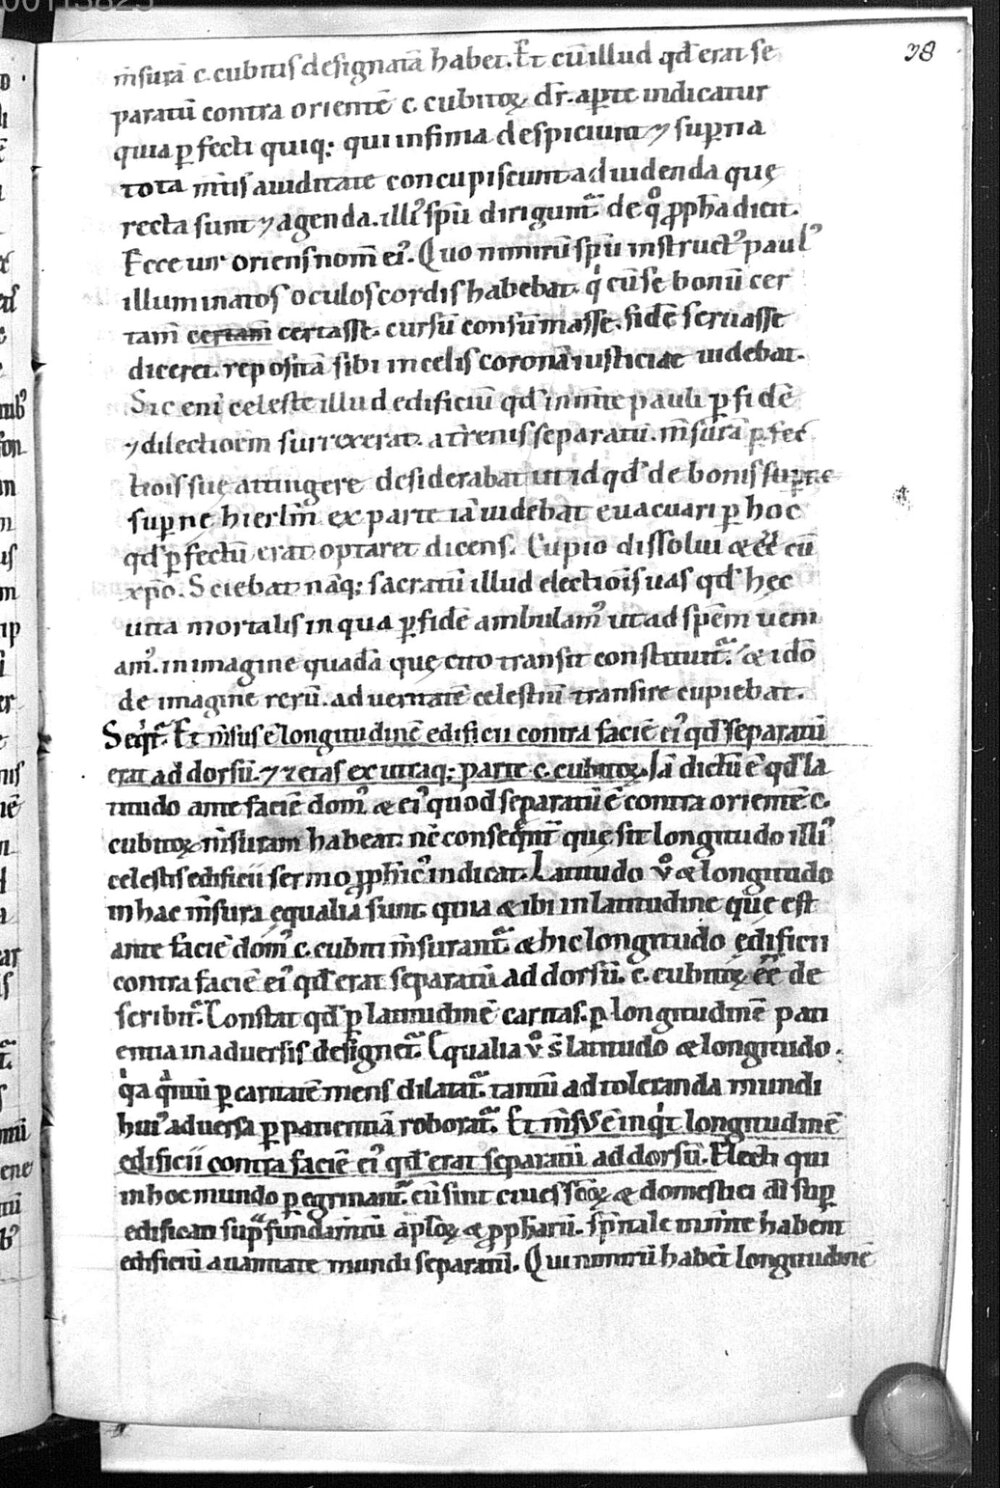 00113825
38
m̃surā c. cubitis designatā habet. Et cū illud qd̄ erat se
paratū contra orientē c. cubitoꝝ dr̄. aꝑte indicatur
quia ꝑfecti quiq; qui infima despiciunt ⁊ suꝑna
tota m̃tis auiditate concupiscunt ad uidenda quę
recta sunt ⁊ agenda. illiꝰ spū dirigunt᷑. de qͦ ꝓph̄a dicit.
Ecce uir oriens nom̄ eiꝰ. Quo nimirū spū instructꝰ paulꝰ
illuminatos oculos cordis habebat. qͥ cū se bonū cer
tam̄ certam̄ certasse. cursū consūmasse. fidē seruasse
diceret. repositā sibi in celis coronā iusticiae uidebat.
Sic eni celeste illud edificiū qd̄ in m̃te pauli ꝑ fidē
⁊ dilectioem̄ surrexerat. a t̃renis separatū. m̃surā ꝑfec
tiois suę attingere desiderabat ut id qd̄ de bonis suꝑne
suꝑnę hierl̄m ex parte iā uidebat euacuari ꝑ hoc
qd̄ ꝑfectū erat optaret dicens. Cupio dissolui & ēē cū
xp̄o. Sciebat nāq; sacratū illud electiois̄ uas qd̄ hęc
uita mortalis in qua ꝑ fidē ambulamꝰ ut ad spēm ueni
amꝰ. in imagine quadā quę cito transit constituit᷑. & idō
de imagine rerū. ad ueritatē celestiū transire cupiebat.
Seqͥt᷑. Et m̃sus ē longitudinē edificii contra faciē eiꝰ qd̄ separatū
erat ad dorsū. ⁊ &̄ecas ex utraq; parte c. cubitoꝝ. Iā dictū ē qd̄ la
titudo ante faciē domꝰ & eiꝰ quod separatū ē contra orientē c.
cubitoꝝ m̃suram habeat. nc̄ consequnt᷑ quę sit longitudo illiꝰ
celestis edificii sermo ꝓph̄icꝰ indicat. Latitudo vͦ & longitudo
in hac m̃sura ęqualia sunt. quia & ibi in latitudine que est
ante faciē domꝰ c. cubiti m̃surant᷑. & hic longitudo edificii
contra faciē eiꝰ qd̄ erat separatū ad dorsū. c. cubitoꝝ ēē de
scribit᷑. Constat qd̄ ꝑ latitudinē caritas. ꝑ longitudinē pati
entia in aduersis designet᷑. Ęqualia vͦ s̄ latitudo & longitudo.
qͥa qͣntū ꝑ caritatē mens dilatat᷑. tantū ad toleranda mundi
huiꝰ aduersa ꝑ patientiā roborat᷑. Et m̃sus ē inqͥt longitudinē
edificii contra faciē eiꝰ qd̄ erat separatū ad dorsū. Electi qui
in hoc mundo ꝑegrinant᷑. cū sint ciues sc̄oꝝ & domestici dī suꝑ
edificati supͣ fundam̄tū apl̄oꝝ & ꝓphar̄ū. spi̅tale in m̃te habent
edificiū a uanitate mundi separatū. Qui nimirū habet̄ longitudinē